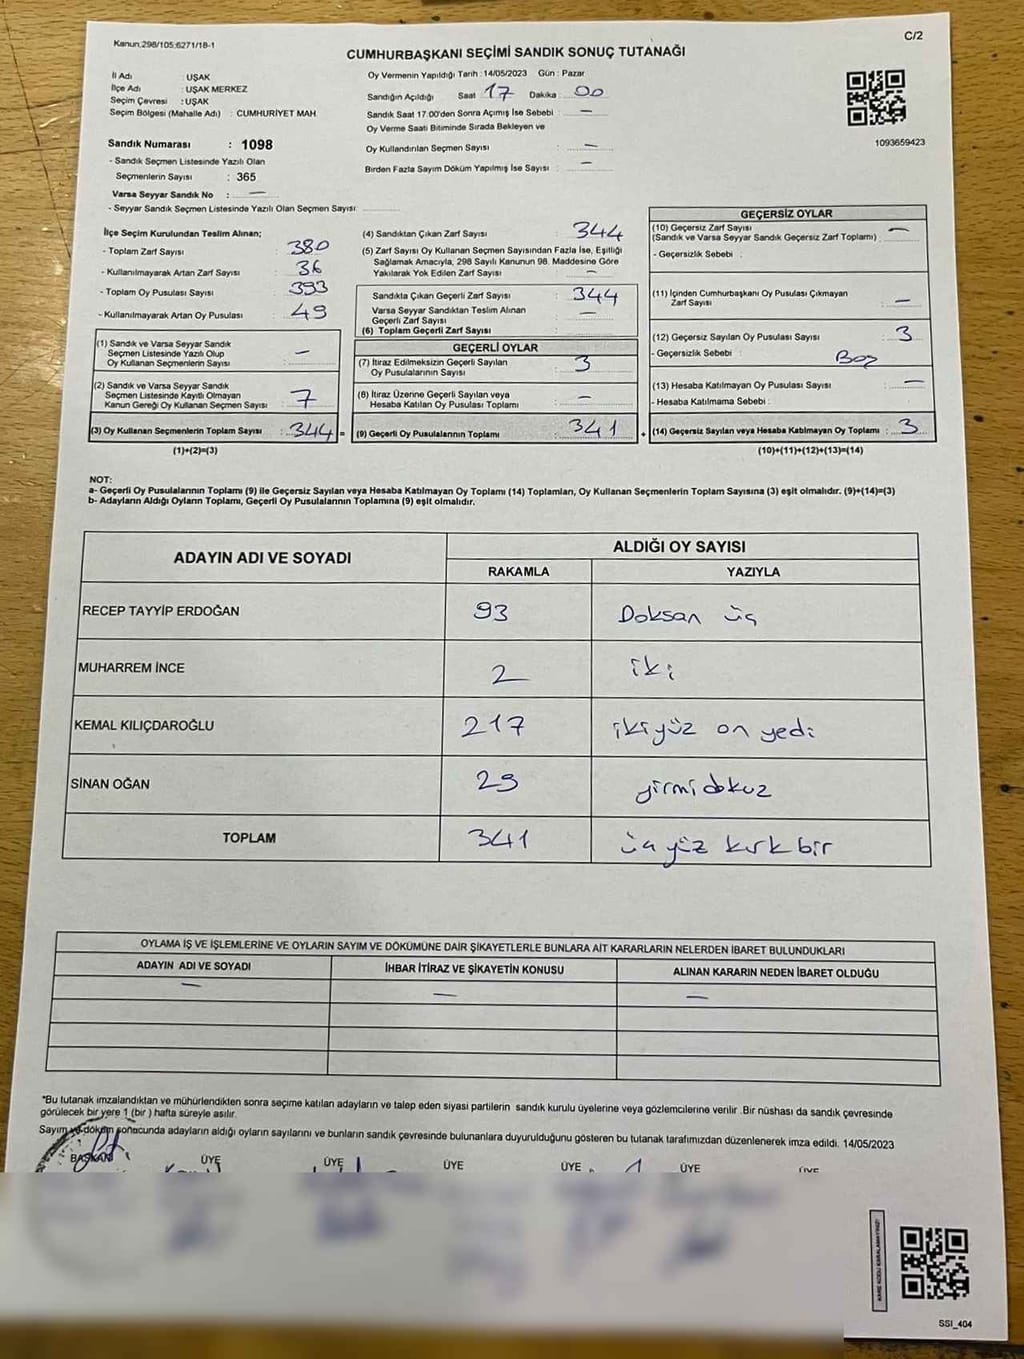 Kanun:298/105;6271/18-1
C/2
CUMHURBAŞKANI SEÇİMİ SANDIK SONUÇ TUTANAĞI
İl Adı : UŞAK
İlçe Adı : UŞAK MERKEZ
Seçim Çevresi : UŞAK
Seçim Bölgesi (Mahalle Adı) : CUMHURİYET MAH
Sandık Numarası : 1098
- Sandık Seçmen Listesinde Yazılı Olan
Seçmenlerin Sayısı : 365
Varsa Seyyar Sandık No : —
- Seyyar Sandık Seçmen Listesinde Yazılı Olan Seçmen Sayısı:
Oy Vermenin Yapıldığı Tarih : 14/05/2023 Gün : Pazar
Sandığın Açıldığı Saat 17 Dakika : 00
Sandık Saat 17.00'den Sonra Açımış İse Sebebi : —
Oy Verme Saati Bitiminde Sırada Bekleyen ve
Oy Kullandırılan Seçmen Sayısı : —
Birden Fazla Sayım Döküm Yapılmış İse Sayısı : —
1093659423
İlçe Seçim Kurulundan Teslim Alınan;
- Toplam Zarf Sayısı : 380
- Kullanılmayarak Artan Zarf Sayısı : 36
- Toplam Oy Pusulası Sayısı : 393
- Kullanılmayarak Artan Oy Pusulası : 49
(1) Sandık ve Varsa Seyyar Sandık
Seçmen Listesinde Yazılı Olup
Oy Kullanan Seçmenlerin Sayısı : —
(2) Sandık ve Varsa Seyyar Sandık
Seçmen Listesinde Kayıtlı Olmayan
Kanun Gereği Oy Kullanan Seçmen Sayısı : 7
(3) Oy Kullanan Seçmenlerin Toplam Sayısı : 344 =
(1)+(2)=(3)
(4) Sandıktan Çıkan Zarf Sayısı : 344
(5) Zarf Sayısı Oy Kullanan Seçmen Sayısından Fazla İse, Eşitliği
Sağlamak Amacıyla, 298 Sayılı Kanunun 98. Maddesine Göre
Yakılarak Yok Edilen Zarf Sayısı : —
Sandıkta Çıkan Geçerli Zarf Sayısı : 344
Varsa Seyyar Sandıktan Teslim Alınan
Geçerli Zarf Sayısı : —
(6) Toplam Geçerli Zarf Sayısı :
GEÇERLİ OYLAR
(7) İtiraz Edilmeksizin Geçerli Sayılan
Oy Pusulalarının Sayısı : 3
(8) İtiraz Üzerine Geçerli Sayılan veya
Hesaba Katılan Oy Pusulası Toplamı : —
(9) Geçerli Oy Pusulalarının Toplamı : 341 +
GEÇERSİZ OYLAR
(10) Geçersiz Zarf Sayısı
(Sandık ve Varsa Seyyar Sandık Geçersiz Zarf Toplamı) : —
- Geçersizlik Sebebi :
(11) İçinden Cumhurbaşkanı Oy Pusulası Çıkmayan
Zarf Sayısı : —
(12) Geçersiz Sayılan Oy Pusulası Sayısı : 3
- Geçersizlik Sebebi : Boş
(13) Hesaba Katılmayan Oy Pusulası Sayısı : —
- Hesaba Katılmama Sebebi :
(14) Geçersiz Sayılan veya Hesaba Katılmayan Oy Toplamı : 3
(10)+(11)+(12)+(13)=(14)
NOT:
a- Geçerli Oy Pusulalarının Toplamı (9) ile Geçersiz Sayılan veya Hesaba Katılmayan Oy Toplamı (14) Toplamları, Oy Kullanan Seçmenlerin Toplam Sayısına (3) eşit olmalıdır. (9)+(14)=(3)
b- Adayların Aldığı Oyların Toplamı, Geçerli Oy Pusulalarının Toplamına (9) eşit olmalıdır.
ADAYIN ADI VE SOYADI
ALDIĞI OY SAYISI
RAKAMLA YAZIYLA
RECEP TAYYİP ERDOĞAN 93 Doksan üç
MUHARREM İNCE 2 iki
KEMAL KILIÇDAROĞLU 217 ikiyüz on yedi
SİNAN OĞAN 29 yirmi dokuz
TOPLAM 341 üç yüz kırk bir
OYLAMA İŞ VE İŞLEMLERİNE VE OYLARIN SAYIM VE DÖKÜMÜNE DAİR ŞİKAYETLERLE BUNLARA AİT KARARLARIN NELERDEN İBARET BULUNDUKLARI
ADAYIN ADI VE SOYADI İHBAR İTİRAZ VE ŞİKAYETİN KONUSU ALINAN KARARIN NEDEN İBARET OLDUĞU
— — —
*Bu tutanak imzalandıktan ve mühürlendikten sonra seçime katılan adayların ve talep eden siyasi partilerin sandık kurulu üyelerine veya gözlemcilerine verilir .Bir nüshası da sandık çevresinde
görülecek bir yere 1 (bir ) hafta süreyle asılır.
Sayım ve döküm sonucunda adayların aldığı oyların sayılarını ve bunların sandık çevresinde bulunanlara duyurulduğunu gösteren bu tutanak tarafımızdan düzenlenerek imza edildi. 14/05/2023
BAŞKAN ÜYE ÜYE ÜYE ÜYE ÜYE ÜYE
KARE KODU KARALAMAYINIZ!
SSI_404